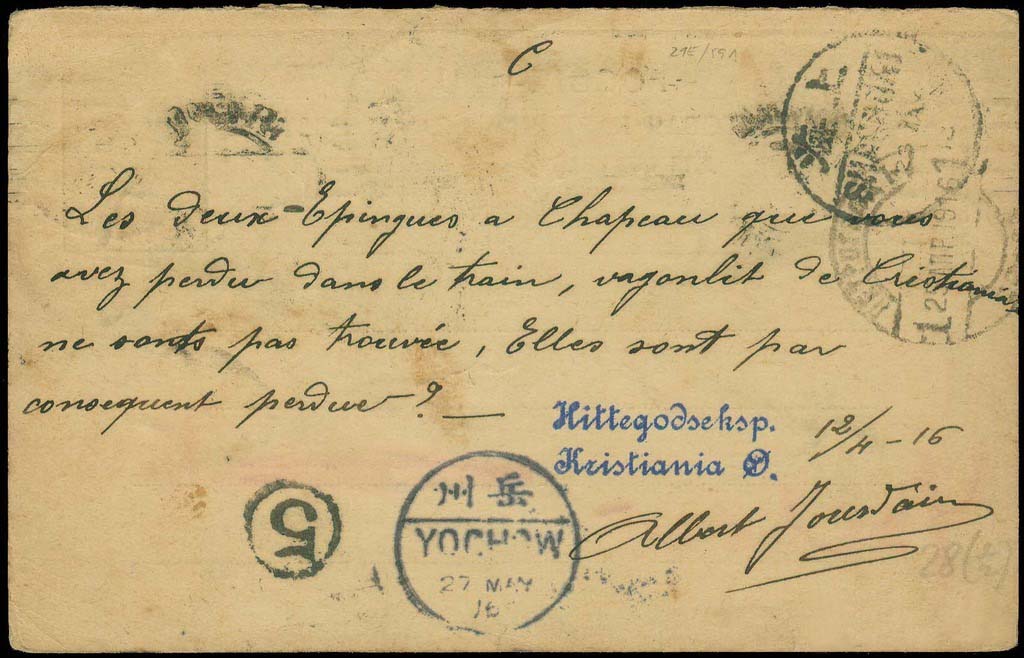 C
21E/591
SHANGHAI
1916
Les deux Epingues a Chapeau que vous
avez perdu dans le train, vagonlit de Cristiania
ne sonts pas trouvée, Elles sont par
consequent perdue ? —
Hittegodseksp.
Kristiania Ø.
12/4 - 16
Albert Jourdain
5
州岳
YOCHOW
27 MAY
16